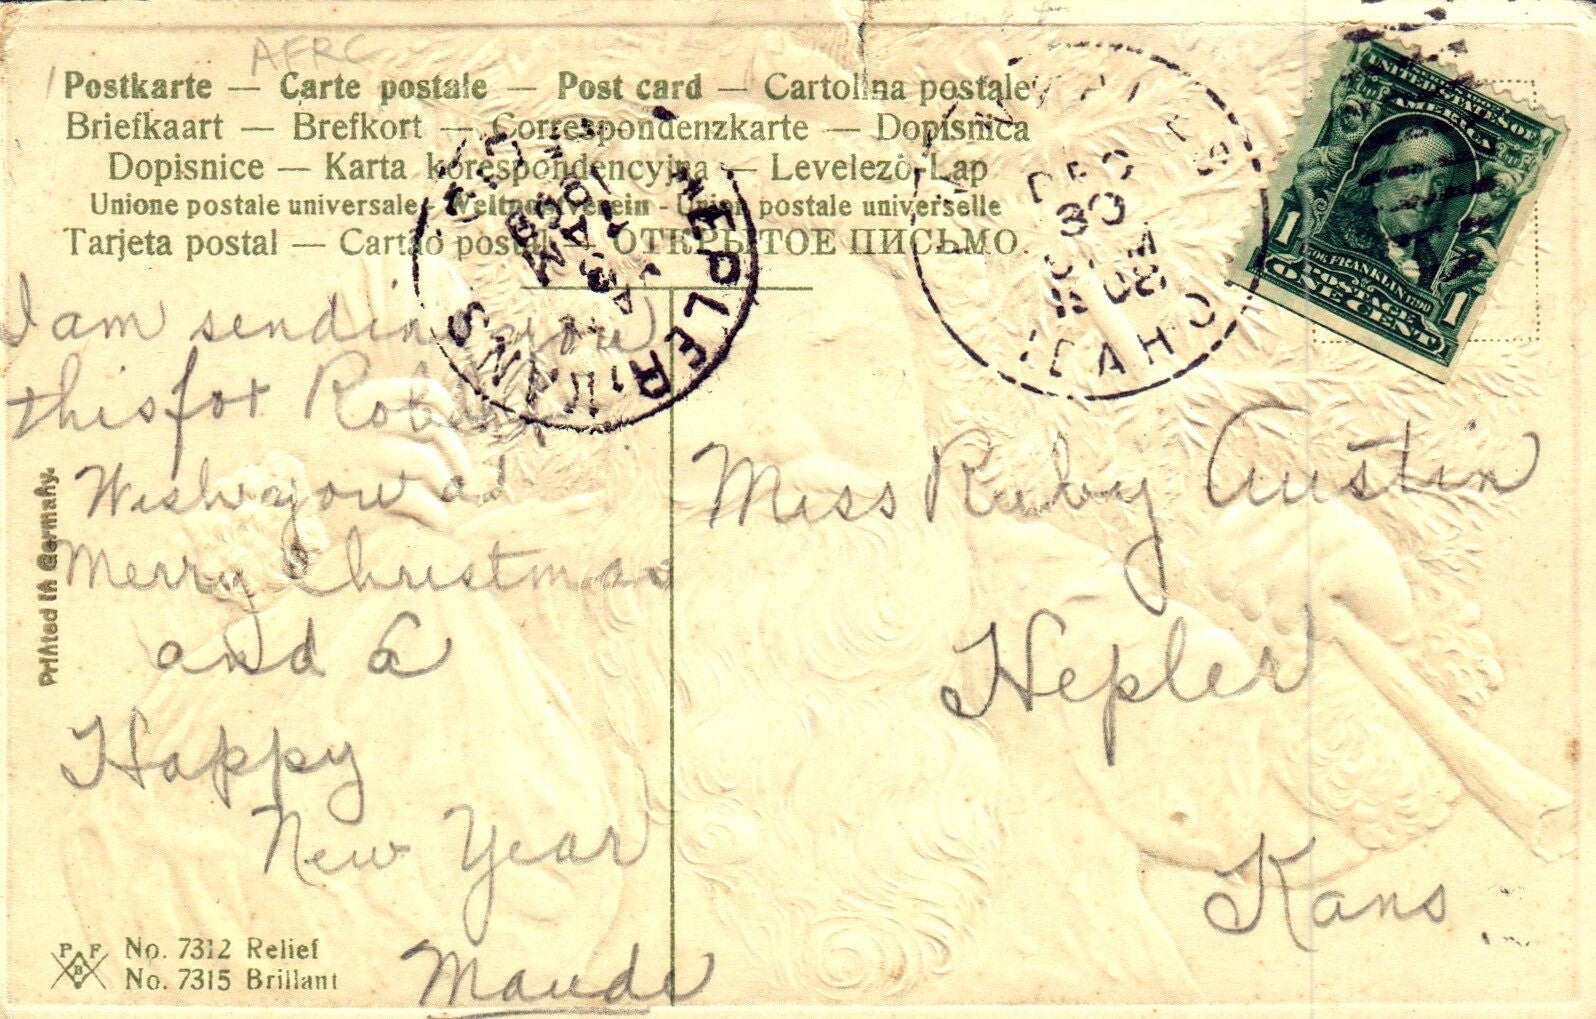 AFRC
Postkarte — Carte postale — Post card — Cartolina postale
Briefkaart — Brefkort — Correspondenzkarte — Dopisnica
Dopisnice — Karta korespondencyjna — Levelező-Lap
Unione postale universale - Weltpostverein - Union postale universelle
Tarjeta postal — Cartão postal — ОТКРЫТОЕ ПИСЬМО.
HEPLER
KANS
REC'D
DEC
30
1908
IDAHO
UNITED STATES OF
AMERICA
1706 FRANKLIN 1790
1 POSTAGE 1
ONE CENT
I am sending you
this for
Wish you a
Merry Christmas
and a
Happy
New Year
Maude
Miss Ruby Austin
Hepler
Kans
Printed in Germany.
P F B
No. 7312 Relief
No. 7315 Brillant